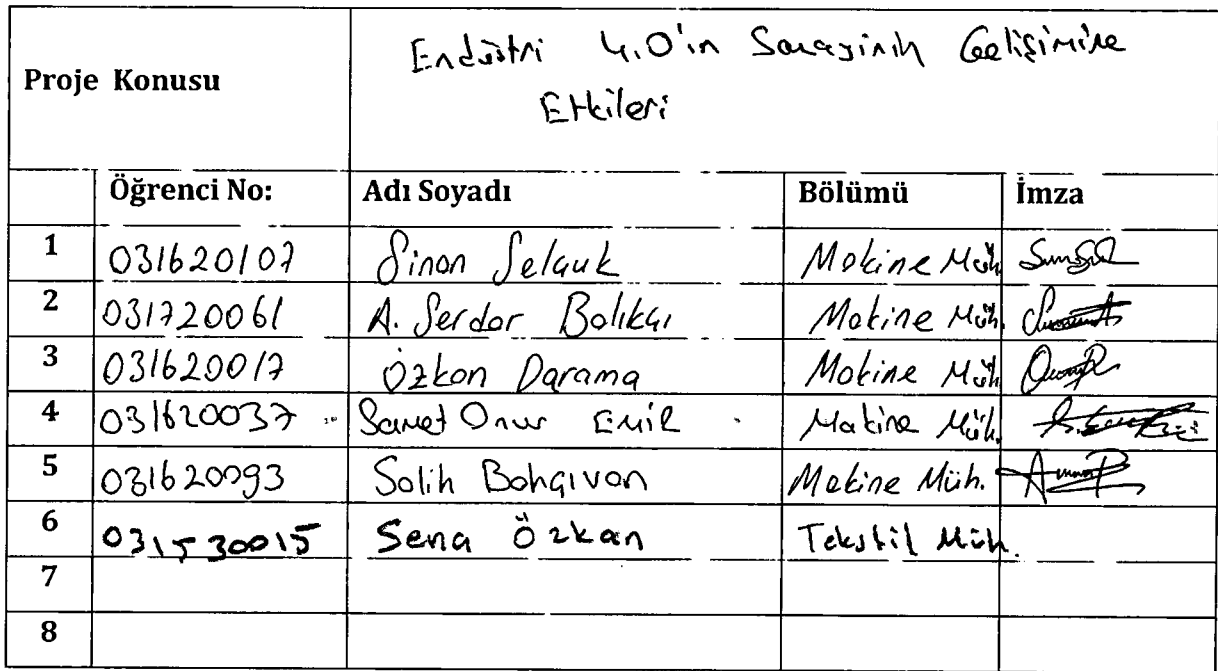 Proje Konusu
Endüstri 4.0'ın Sanayinin Gelişimine
Etkileri
Öğrenci No: Adı Soyadı Bölümü İmza
1 031620107 Sinan Selçuk Makine Müh.
2 031720061 A. Serdar Balıkçı Makine Müh.
3 031620017 Özkan Darama Makine Müh.
4 031620037 Samet Onur EMİR Makine Müh.
5 031620093 Salih Bahçıvan Makine Müh.
6 031530015 Sena Özkan Tekstil Müh.
7
8